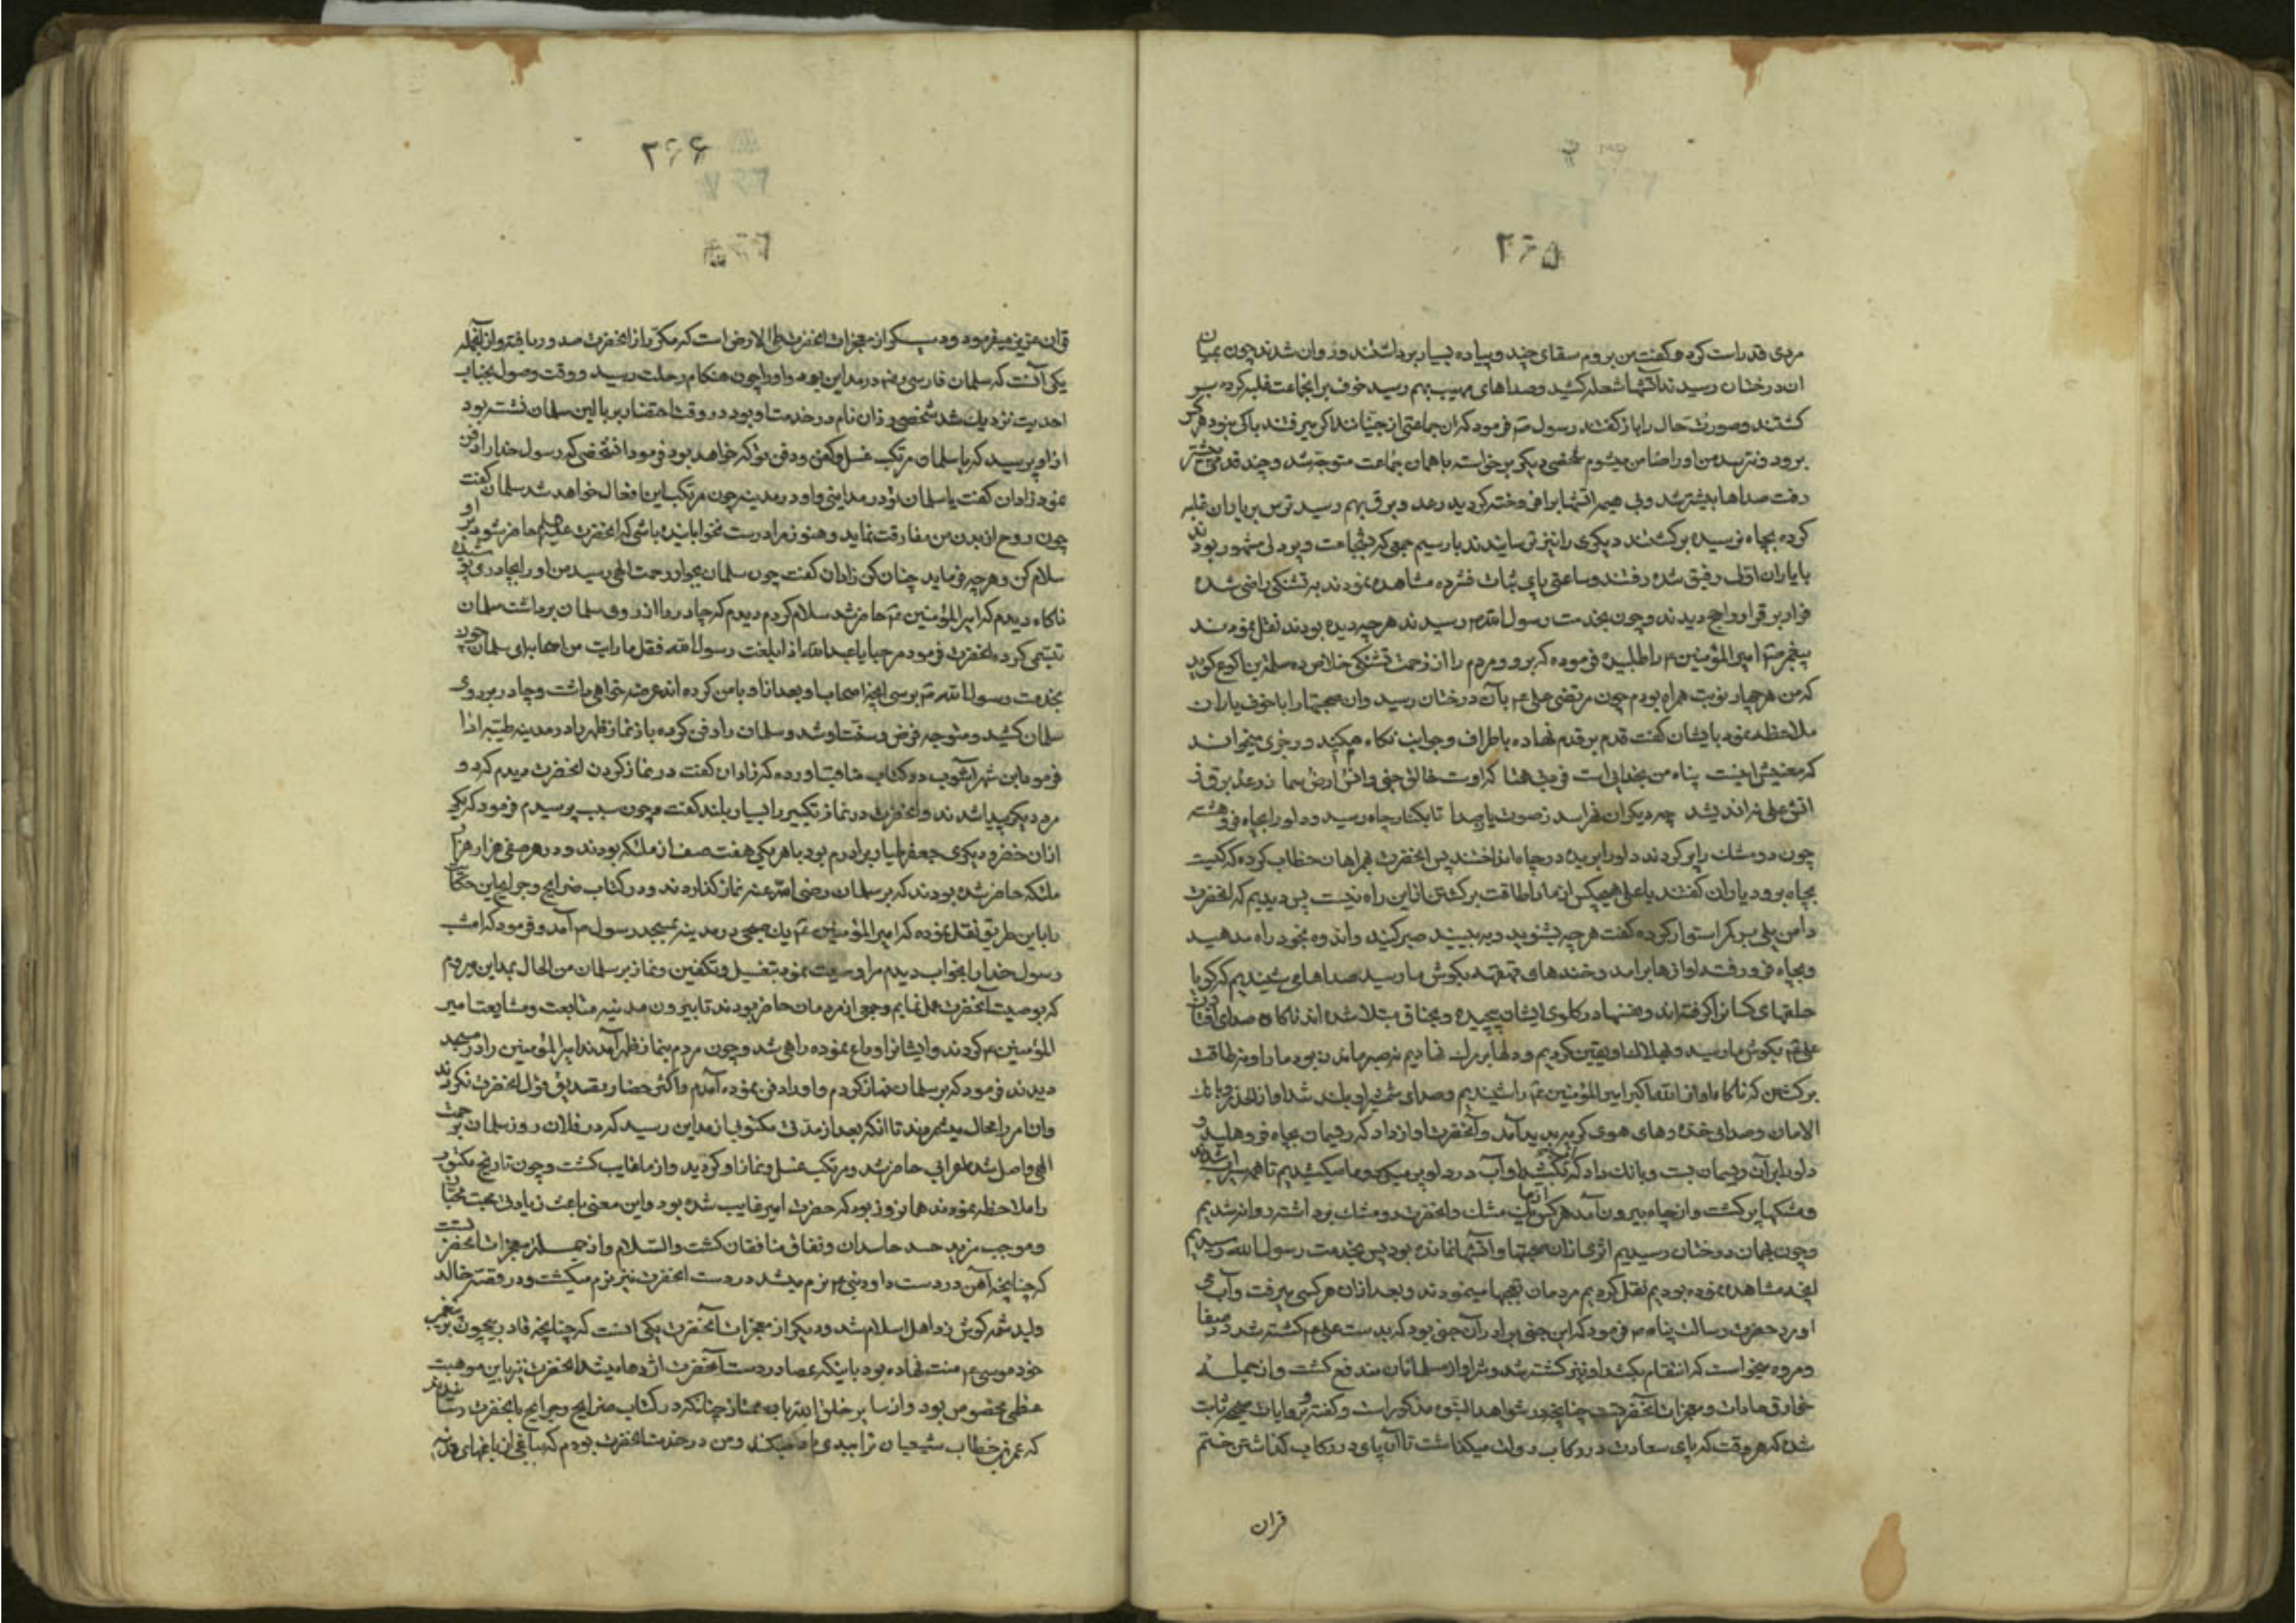 ۲۶۵
مردی قد راست کرد و گفت من بروم سقای چند و پیاده بسیار برداشتند و روان شدند چون بمیان
ان درختان رسیدند آتشها شعله کشید و صداهای مهیب بهم رسید خوف بر انجماعت غلبه کرده بر
کشتند وصورت حال را باز کفتند رسول ص فرمود که ان جماعتی از جنیانند اکر میرفتند باکی نبود هر کس
برود و نترسد من او را ضامن میشوم شخصی دیکر برخواسته با همان جماعت متوجه شد و چند قدمی پیشتر
رفت صداها بیشتر شد و بی هیمه آتشها برافروخته کردید رعد و برق بهم رسید ترس بر یاران غلبه
کرده بچاه نرسیده برکشتند دیکری را نیز ترسانیدند بار سیم جمعی که بشجاعت و پردلی مشهور بودند
با یاران اول رفیق شده رفتند و ساعتی پای ثبات فشرده مشاهده نمودند به تشنکی راضی شده
فرار بر قرار واجح دیدند و چون بخدمت رسول الله رسیدند هر چه دیده بودند نقل نمودند
پیغمبر ص امیر المؤمنین ع را طلبیده فرموده که برو و مردم را از زحمت تشنکی خلاص ده سلمة بن اکوع کوید
که من هر چهار نوبت همراه بودم چون مرتضی علی ع بآن درختان رسید وان صحبتها را با خوف یاران
ملاحظه نمود بایشان کفت قدم بر قدم نهاده باطراف و جوانب نکاه میکنید و رجزی میخوانند
که معنیش اینست پناه من بخدایی است
اتش علی نه اندیشد چه دیکران هراسد ز صوت یا صدا تا بکنار چاه رسید و دلو را بچاه فرو هشته
چون دو مشک را پر کردند دلو را بریده در چاه انداختند پس انحضرت بهمراهان خطاب کرده که کیست
بچاه برود یاران کفتند یا علی هیچکس از ما را طاقت برکشتن ازین راه نیست پس دیدیم که انحضرت
دامن یلی بر کمر استوار کرده کفت هر چه بشنوید و به بینید صبر کنید و اندوه بخود راه مدهید
وبچاه فرو رفت اوازها برامد و خندهای قهقهه بکوش ما رسید صداهای شنیدیم که کویا
حلقهای کسانرا کرفته اند و رسنها در کلوی ایشان پیچیده و بخناق مبتلا شده اند ناکاه صدای افتادن
علی ع بکوش ما رسید و بهلاک او یقین کردیم و دلها بر مرک نهادیم نه صبر ماندن بود ما را و نه طاقت
برکشتن که ناکاه اواز الله اکبر امیر المؤمنین ع را شنیدیم وصدای شمشیر او بلند شد اواز الحذر و بانک
الامان وصدای خنده وهای هوی کریه پدید آمد و آنحضرت اواز داد که ریسمان بچاه فرو هلید و
دلو را بر آن ریسمان بست و بانک داد که بکشید او آب در دلو پر میکرد و ما میکشیدیم تا همه سیراب شدند
ومشکها پر کشت و از چاه بیرون آمد هر کس از ما یک مشک وانحضرت دو مشک برداشته روانه شدیم
وچون بهمان درختان رسیدیم اثری ازان صحبتها و آتشها نمانده بود پس بخدمت رسول الله رسیدیم
انچه مشاهده نموده بودیم نقل کردیم مردمان تعجبها مینمودند و بعد ازان هر کسی میرفت وآب می
اورد حضرت رسالت پناه ص فرمود که این جنی برادر آن جنی بود که بدست علی ع کشته شد در صفا
ومروه میخواست که انتقام بکشد او نیز کشته شد و شر او از مسلمانان مندفع کشت واز جمله
خوارق عادات و معجزات آنحضرتست چنانچه در شواهد النبوة مذکور است و کفته بروایات صحیحه ثابت
شده که هر وقت که پای سعادت در رکاب دولت میکذاشت تا آن پای در رکاب کذاشتن ختم
قران
۲۶۶
قران عزیز میفرمود و دیکر از معجزات انحضرت طی الارض است که مکرر از انحضرت صدور یافته و از آنجمله
یکی آنست که سلمان فارسی رض در مداین بود و او را چون هنکام رحلت رسید و وقت وصول بجناب
احدیت نزدیک شد شخصی زاذان نام در خدمت او بود در وقت احتضار بر بالین سلمان نشسته بود
از او پرسید که یا سلمان مرتکب غسل و کفن و دفن تو که خواهد بود فرمود انشخصی که رسول خدا را دفن
نمود زاذان کفت یا سلمان تو در مداینی و او در مدینه چون مرتکب این افعال خواهد شد سلمان کفت
چون روح از بدن من مفارقت نماید وهنوز مرا درست نخوابانیده باشی که انحضرت حاضر شود بر او
سلام کن و هر چه فرماید چنان کن زاذان کفت چون سلمان بجوار رحمت الهی رسید من او را بچادری پوشیده
ناکاه دیدم که امیر المؤمنین ع حاضر شد سلام کردم دیدم که چادر را از روی سلمان برداشت سلمان
تبسمی کرد انحضرت فرمود مرحبا یا عبد الله اذا بلغت رسول الله فقل ما رایت من اصحابه ای سلمان چون
بخدمت رسول الله ص برسی انچه اصحاب او بعد از او با من کرده اند عرضه خواهی داشت و چادر بر روی
سلمان کشید و متوجه فرض و سنت او شد و سلمان را دفن کرده باز نماز ظهر را در مدینه طیبه ادا
فرمود ابن شهراشوب در کتاب مناقب اورده که زاذان کفت در نماز کردن انحضرت دیدم کرد و
مرد دیکر پیدا شدند و انحضرت در نماز تکبیر را بسیار بلند کفت و چون سبب پرسیدم فرمود که یکی
ازان خضر و دیکری جعفر طیار برادرم بود با هر یکی هفت صف از ملئکه بودند و در هر صفی هزار هزار
ملئکه حاضر شده بودند که بر سلمان رضی الله عنه نماز کذاردند و در کتاب خرایج وجرایح این حکایت
را باین طریق نقل نموده که امیر المؤمنین ع یک صبحی در مدینه بمسجد رسول ص آمد و فرمود که امشب
رسول خدا را بخواب دیدم مرا وصیت نمود بتغسیل و تکفین و نماز بر سلمان من الحال بمداین میروم
که بوصیت آنحضرت عمل نمایم وجمعی از مردمان حاضر بودند تا بیرون مدینه متابعت ومشایعت امیر
المؤمنین ع کردند و ایشانرا وداع نموده راهی شد و چون مردم بنماز ظهر آمدند امیر المؤمنین را در مسجد
دیدند فرمود که بر سلمان نماز کردم و او را دفن نموده آمدم واکثر حضار تصدیق قول انحضرت نکردند
وان امر را محال میشمردند تا انکه بعد از مدتی مکتوبی از مداین رسید که در فلان روز سلمان برحمت
الهی واصل شد اعرابی حاضر شد و مرتکب غسل و نماز او کردید و از ما غایب کشت و چون تاریخ مکتوب
را ملاحظه نمودند همانروز بود که حضرت امیر غایب شده بود و این معنی باعث زیادتی محبت محبان
وموجب مزید حسد حاسدان ونفاق منافقان کشت والسلام واز جمله معجزات انحضرتست
که چنانچه آهن در دست داود نبی ع نرم میشد در دست انحضرت نیز نرم میکشت و در قصه خالد
ولید شمه کوش زد اهل اسلام شد و دیکر از معجزات آنحضرت یکی انست که چنانچه قادر بیچون بر پیغمبر
خود موسی ع منت نهاده بود باینکه عصا در دست آنحضرت اژدها میشد انحضرت نیز باین موهبت
عظمی مخصوص بود و از سایر خلق الله باین ممتاز چنانکه در کتاب خرایج وجرایح بانحضرت رسانیدند
که عمر خطاب شیعیان ترا ببدی یاد میکند و من در خدمت انحضرت بودم که بباغی از باغهای مدینه